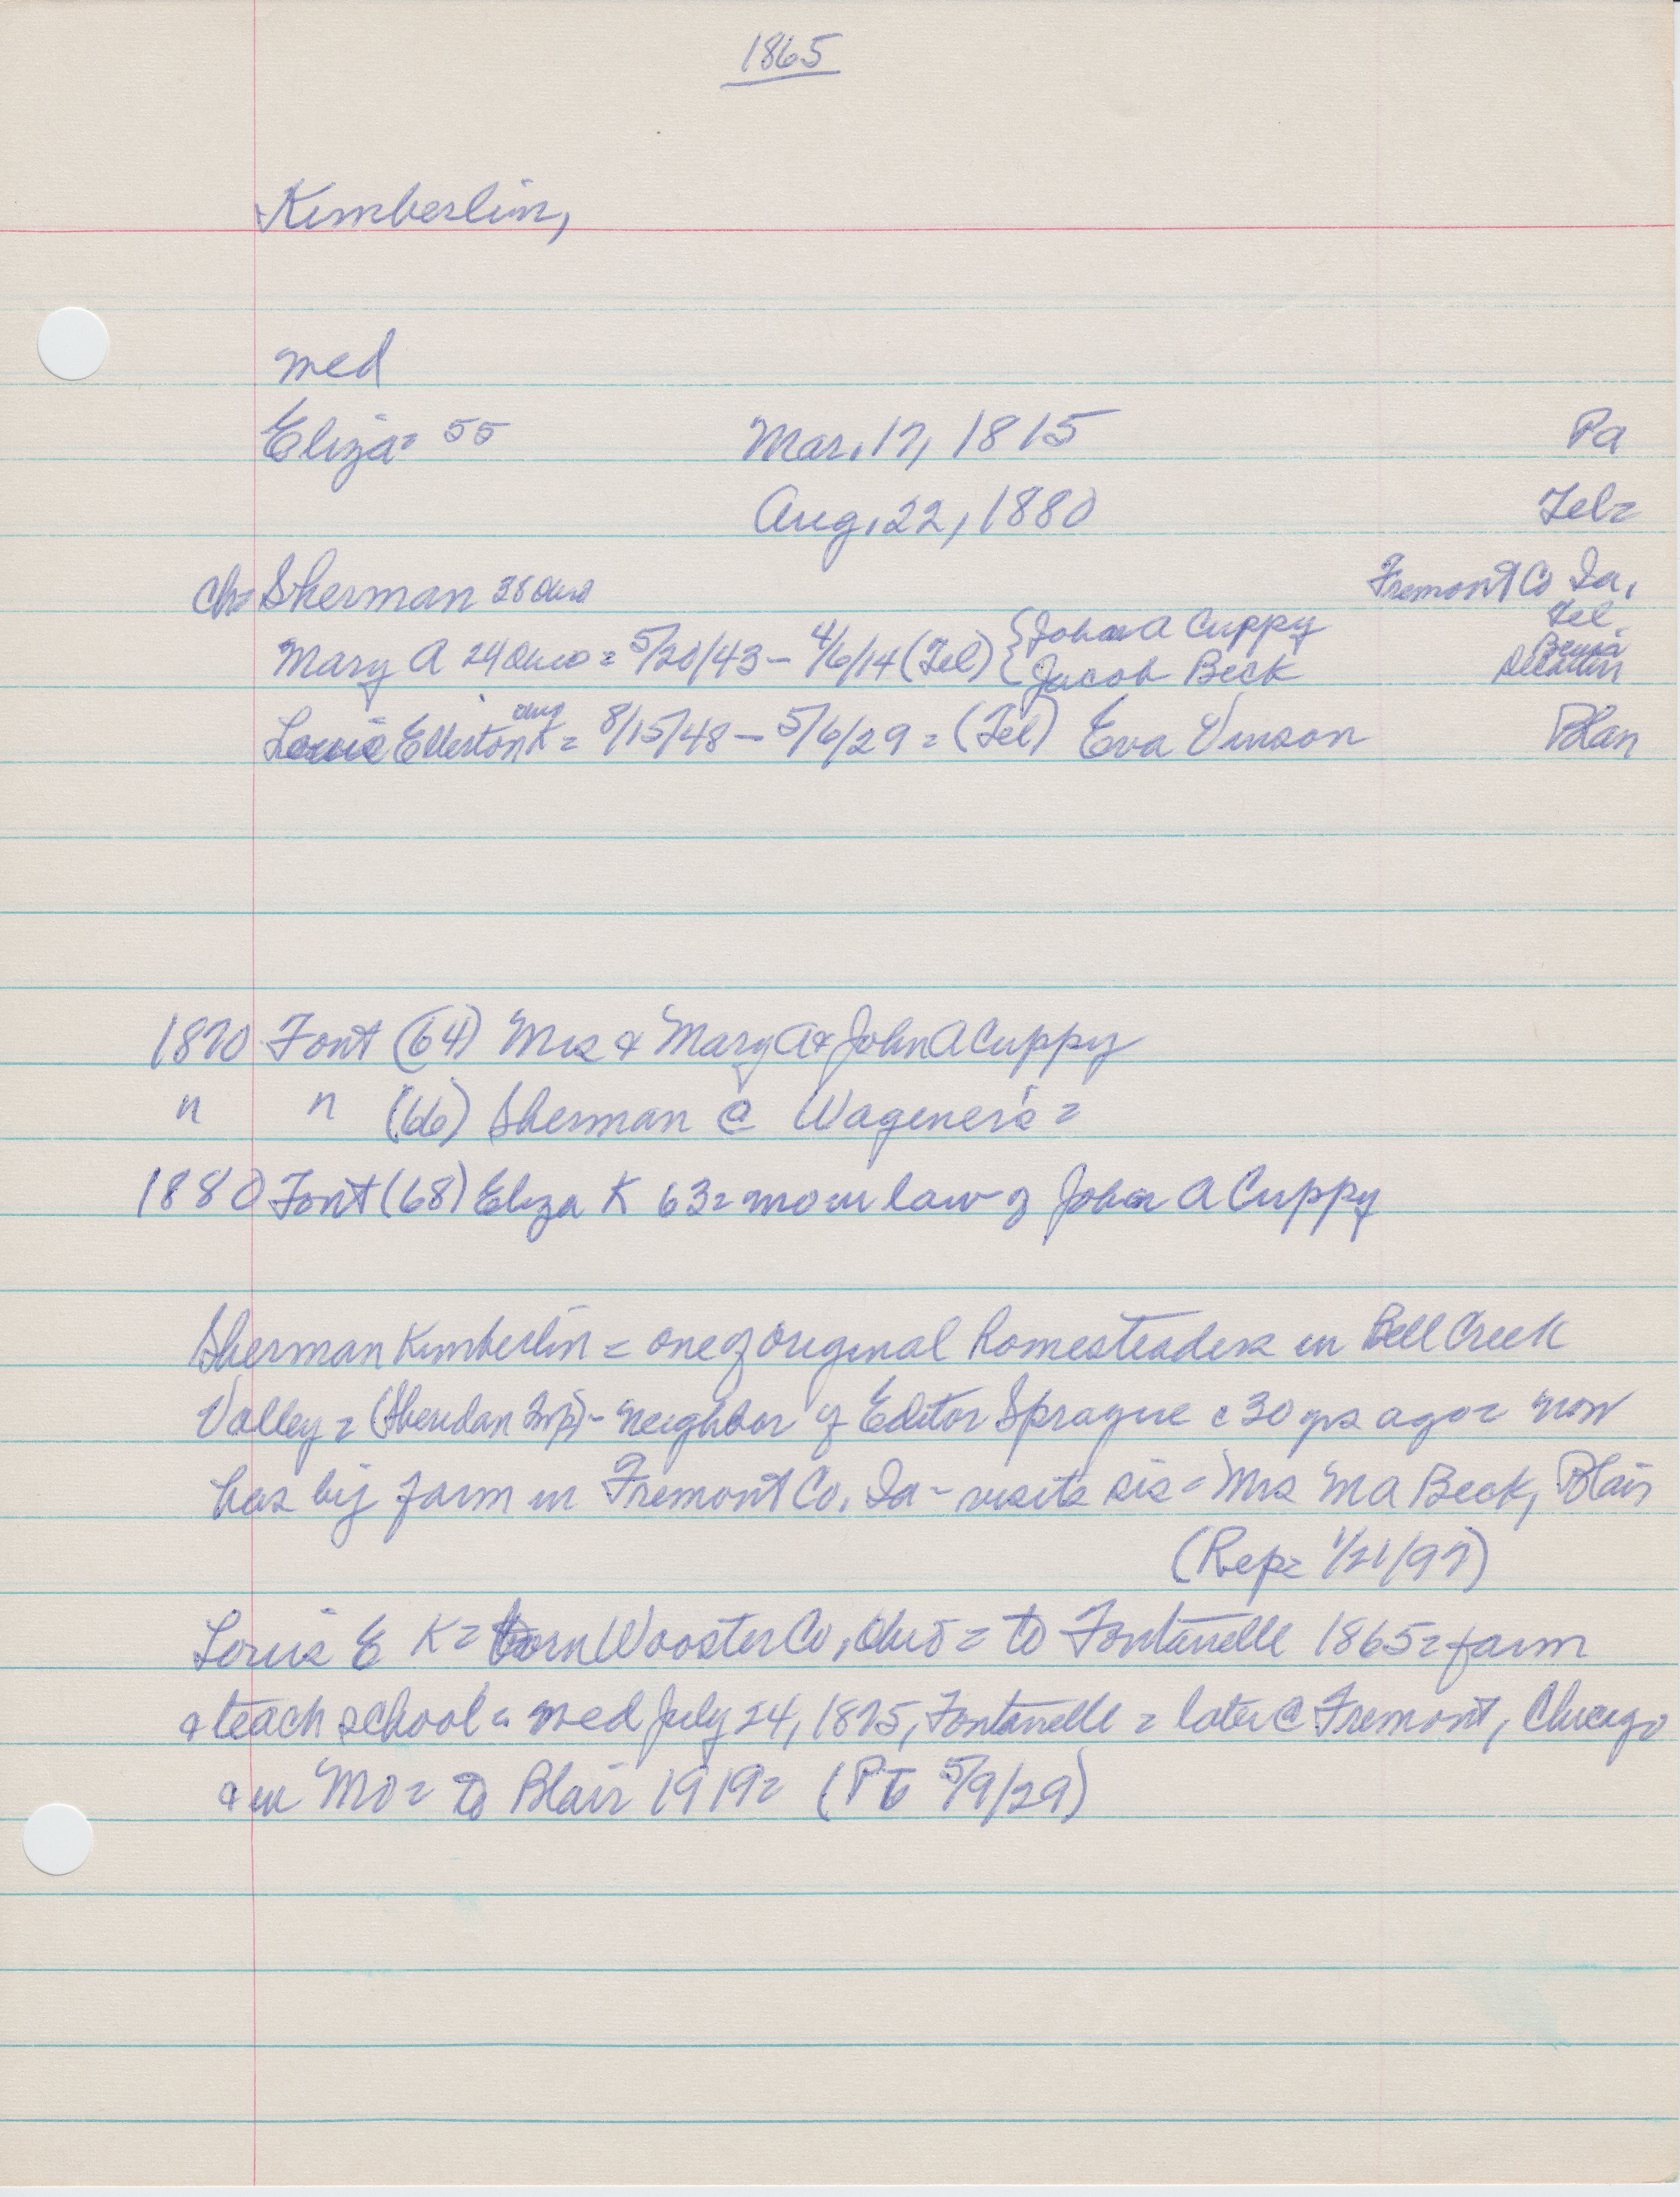 1865
Kimberlin,
med
Eliza = 55 Mar. 17, 1815 Pa
Aug. 22, 1880 Tel =
ch = Sherman 38 Ohio Fremont Co Ia.
Mary A 24 Ohio = 5/20/43 - 4/6/14 (Tel) { John A Cuppy Tel
{ Jacob Beck
Louis Ellerton K = 8/15/48 - 5/6/29 = (Tel) Eva Vinson Blair
1870 Font (64) Mrs & Mary A & John A Cuppy
" " (66) Sherman @ Wagener's =
1880 Font (68) Eliza K 63 = mo in law of John A Cuppy
Sherman Kimberlin = one of original homesteaders in Bell Creek
Valley = (Sheridan Twp) - neighbor of Editor Sprague c 30 yrs ago = now
has big farm in Fremont Co, Ia - visits sis = Mrs M A Beck, Blair
(Rep = 1/21/97)
Louis E K = born Wooster Co, Ohio = to Fontanelle 1865 = farm
& teach school = med July 24, 1875, Fontanelle = later @ Fremont, Chicago
& in Mo = to Blair 1919 = (PT 5/9/29)